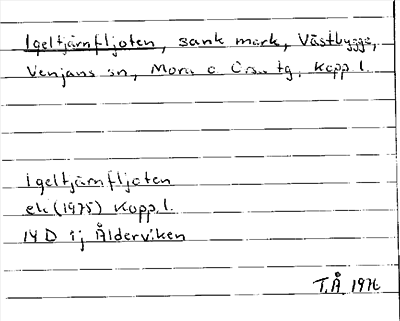 Igeltjärnfljoten, sank mark, Västbygge,
Venjans sn, Mora o Ors. tg, Kopp. l.
Igeltjärnfljoten
ek (1975) Kopp. l.
14 D ij Ålderviken
T.Å 1976